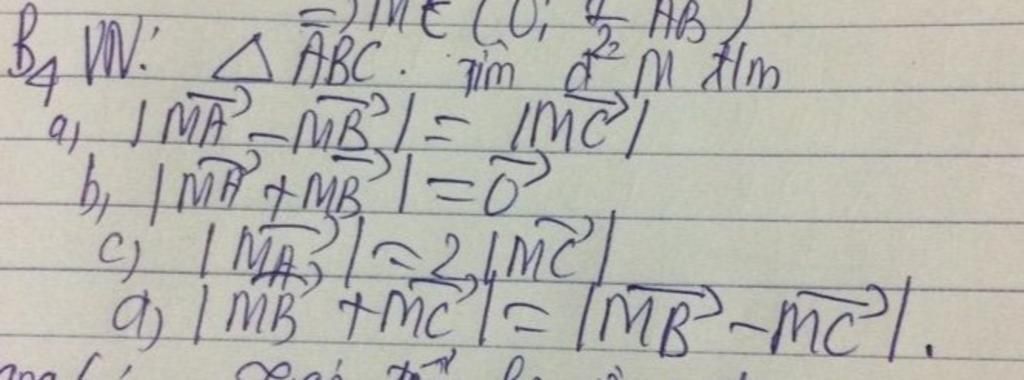 =) M ∈ (O; 1/2 AB)
B4 VN: △ ABC. Tìm đ² M t/m
a, |\overrightarrow{MA} - \overrightarrow{MB}| = |\overrightarrow{MC}|
b, |\overrightarrow{MA} + \overrightarrow{MB}| = \overrightarrow{0}
c) |\overrightarrow{MA}| = 2|\overrightarrow{MC}|
d) |\overrightarrow{MB} + \overrightarrow{MC}| = |\overrightarrow{MB} - \overrightarrow{MC}|.